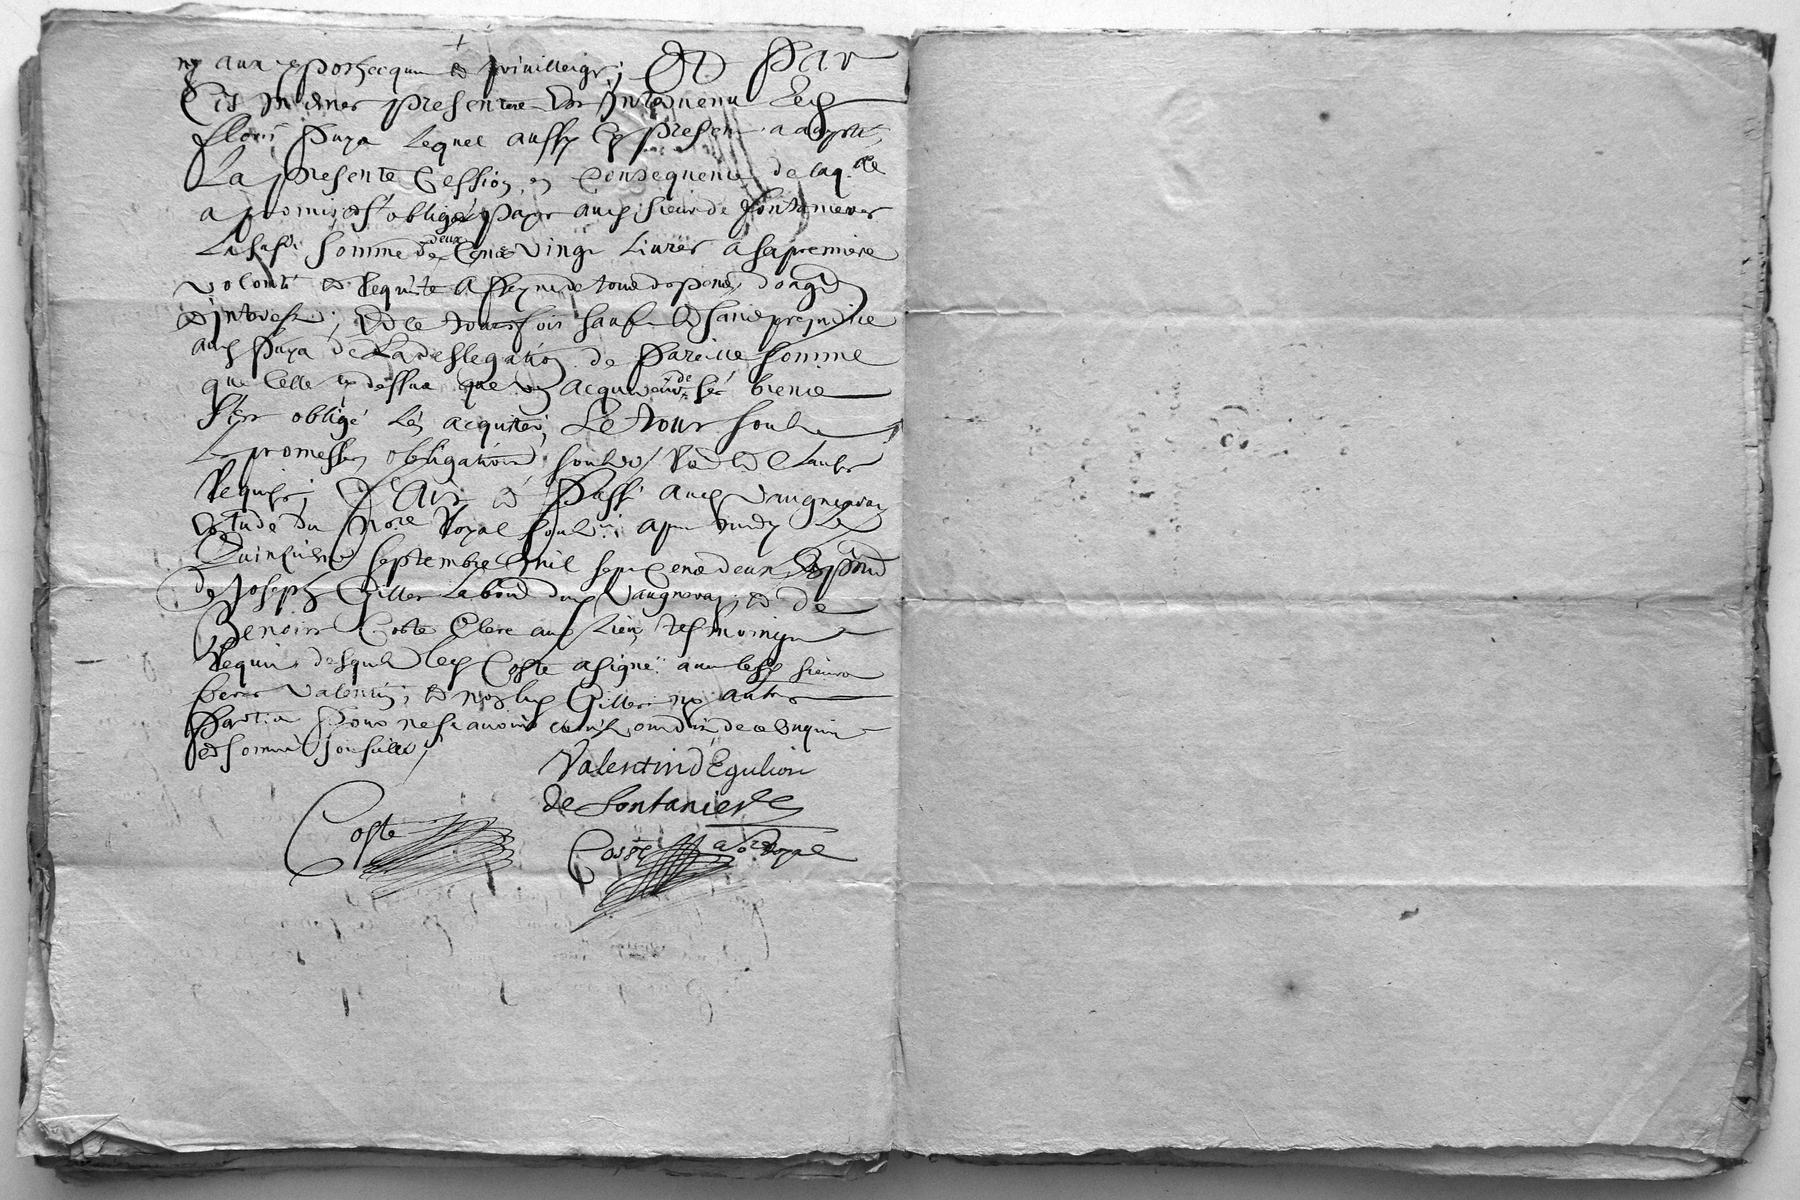 aux ypothecques et privilleiges; Et Par
Ces mesmes presentes Est Intervenu Led
fleury Puya Lequel aussy Cy present a accepté
La presente Cession, en Consequence de laq.lle
a promis et s'obligé payer aud sieur de fontanieres
La susd somme de deux Cens vingt Livres a sa premiere
volonté et Requeste a peyne de tous despens, domages
et interest; Et ce toutesfois sauf et sans prejudice
aud Puya de La deslegation de Pareille somme
que Celle cy dessus que acquereur de ses biens
s'est obligé Les acquiter, Le tout soubs
promesses obligations soubs et Clauses
Requises; fait et Passé aud vaugneray
estude du No.re Royal soub.né apres midy Le
Quinziesme septembre mil sept Cens deux En presence
de Joseph Gilles Labour dud Vaugneray, et de
Benoist Coste Clerc aud Lieu, tesmoings
Requis desquels led Coste a signé avec lesd sieurs
Valentin, et non led Gilles ny autres
Parties Pour ne sçavoir de ce Enquis
et sommé
Valentin d'Eguilion
de fontanieres
Coste
Coste No.re Royal